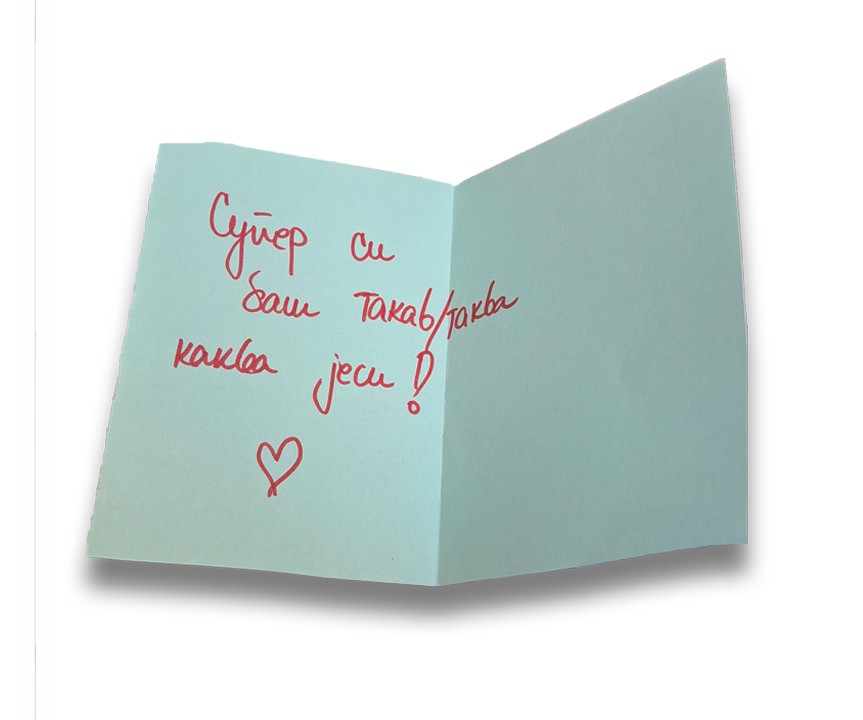 Супер си
баш такав/таква
каква јеси!